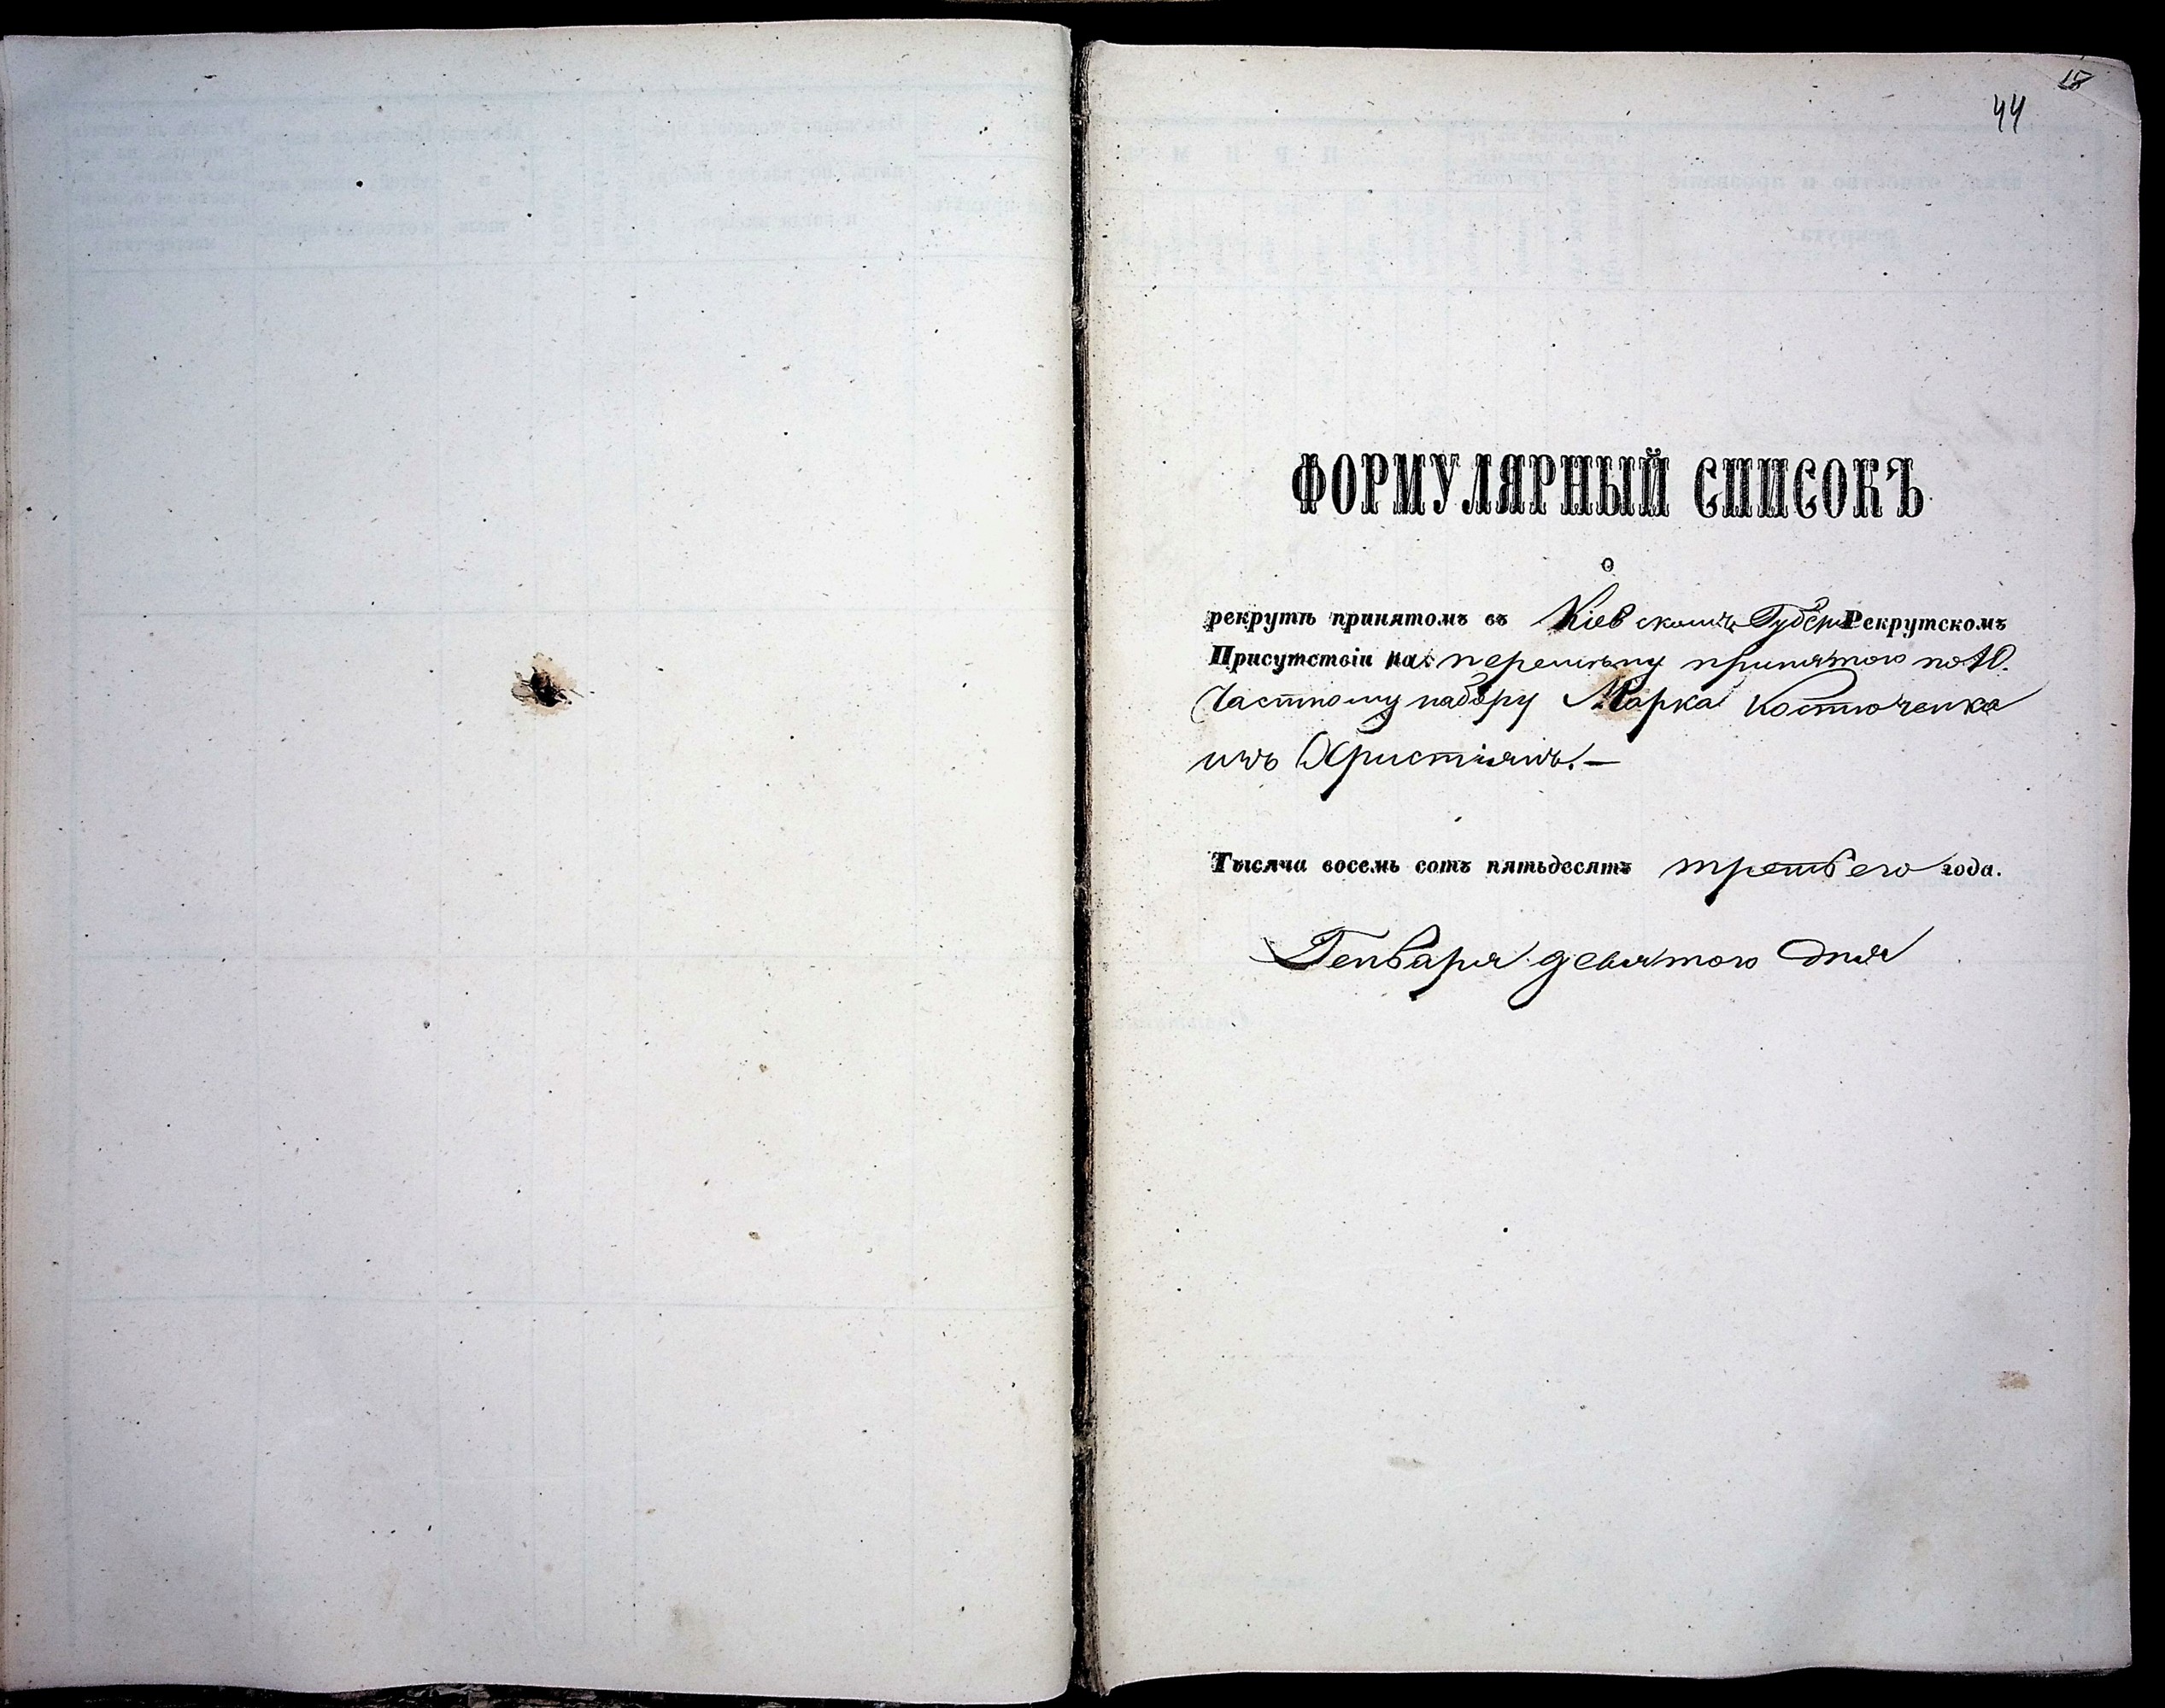 18
44
ФОРМУЛЯРНЫЙ СПИСОКЪ
о
рекрутѣ принятомъ въ Кіевскомъ Губерн Рекрутскомъ
Присутствіи на перемѣну принятого по 10.
Частному набору Марка Костюченка
изъ Христіянъ.—
Тысяча восемь сотъ пятьдесятъ третьего года.
Генваря девятого дня